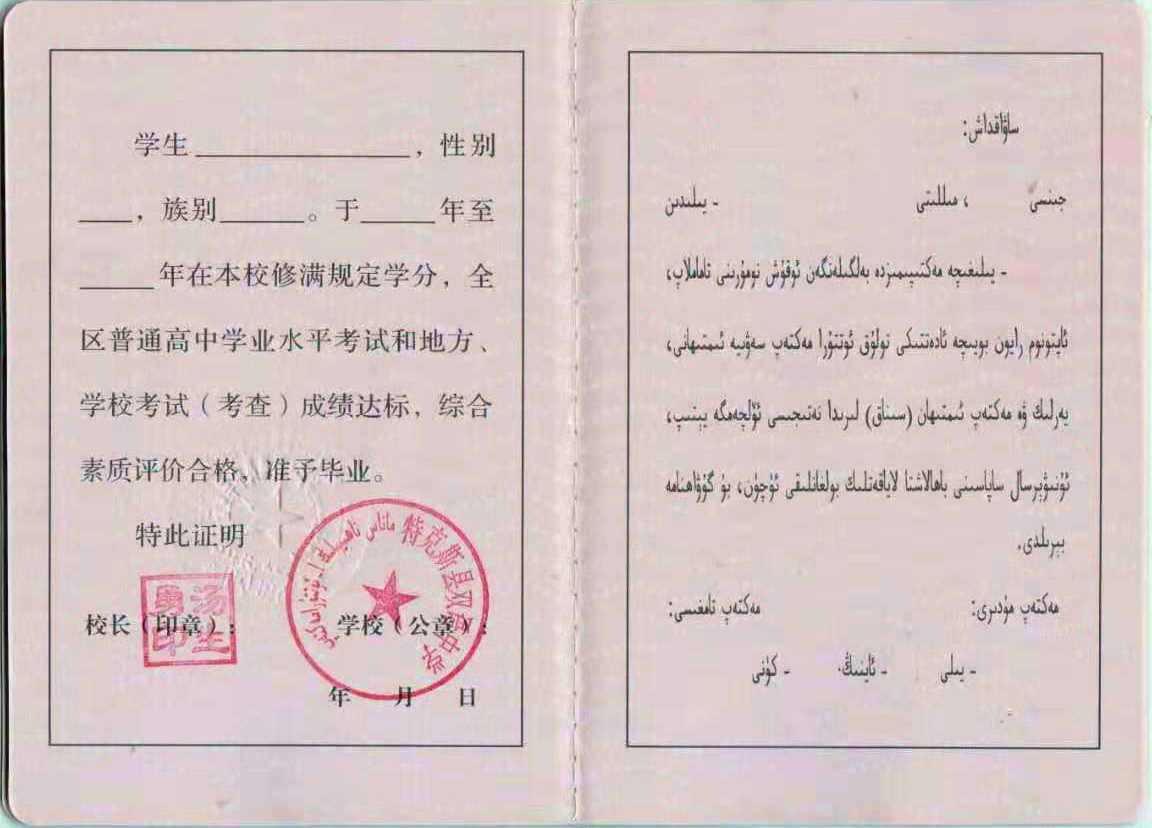 学生________________，性别
____，族别______。于______年至
______年在本校修满规定学分，全
区普通高中学业水平考试和地方、
学校考试（考查）成绩达标，综合
素质评价合格，准予毕业。
特此证明
校长（印章）：
学校（公章）：
年 月 日
特克斯县双语中学
ساۋاقداش:
جىنسى ، مىللىتى - يىلىدىن
- يىلىغىچە مەكتىپىمىزدە بەلگىلەنگەن ئوقۇش نومۇرىنى تاماملاپ،
ئاپتونوم رايون بويىچە ئادەتتىكى تولۇق ئوتتۇرا مەكتەپ سەۋىيە ئىمتىھانى،
يەرلىك ۋە مەكتەپ ئىمتىھان (سىناق) لىرىدا نەتىجىسى ئۆلچەمگە يېتىپ،
ئۇنىۋېرسال ساپاسىنى باھالاشتا لاياقەتلىك بولغانلىقى ئۈچۈن، بۇ گۇۋاھنامە
بېرىلدى.
مەكتەپ مۇدىرى: مەكتەپ تامغىسى:
- يىلى - ئاينىڭ - كۈنى